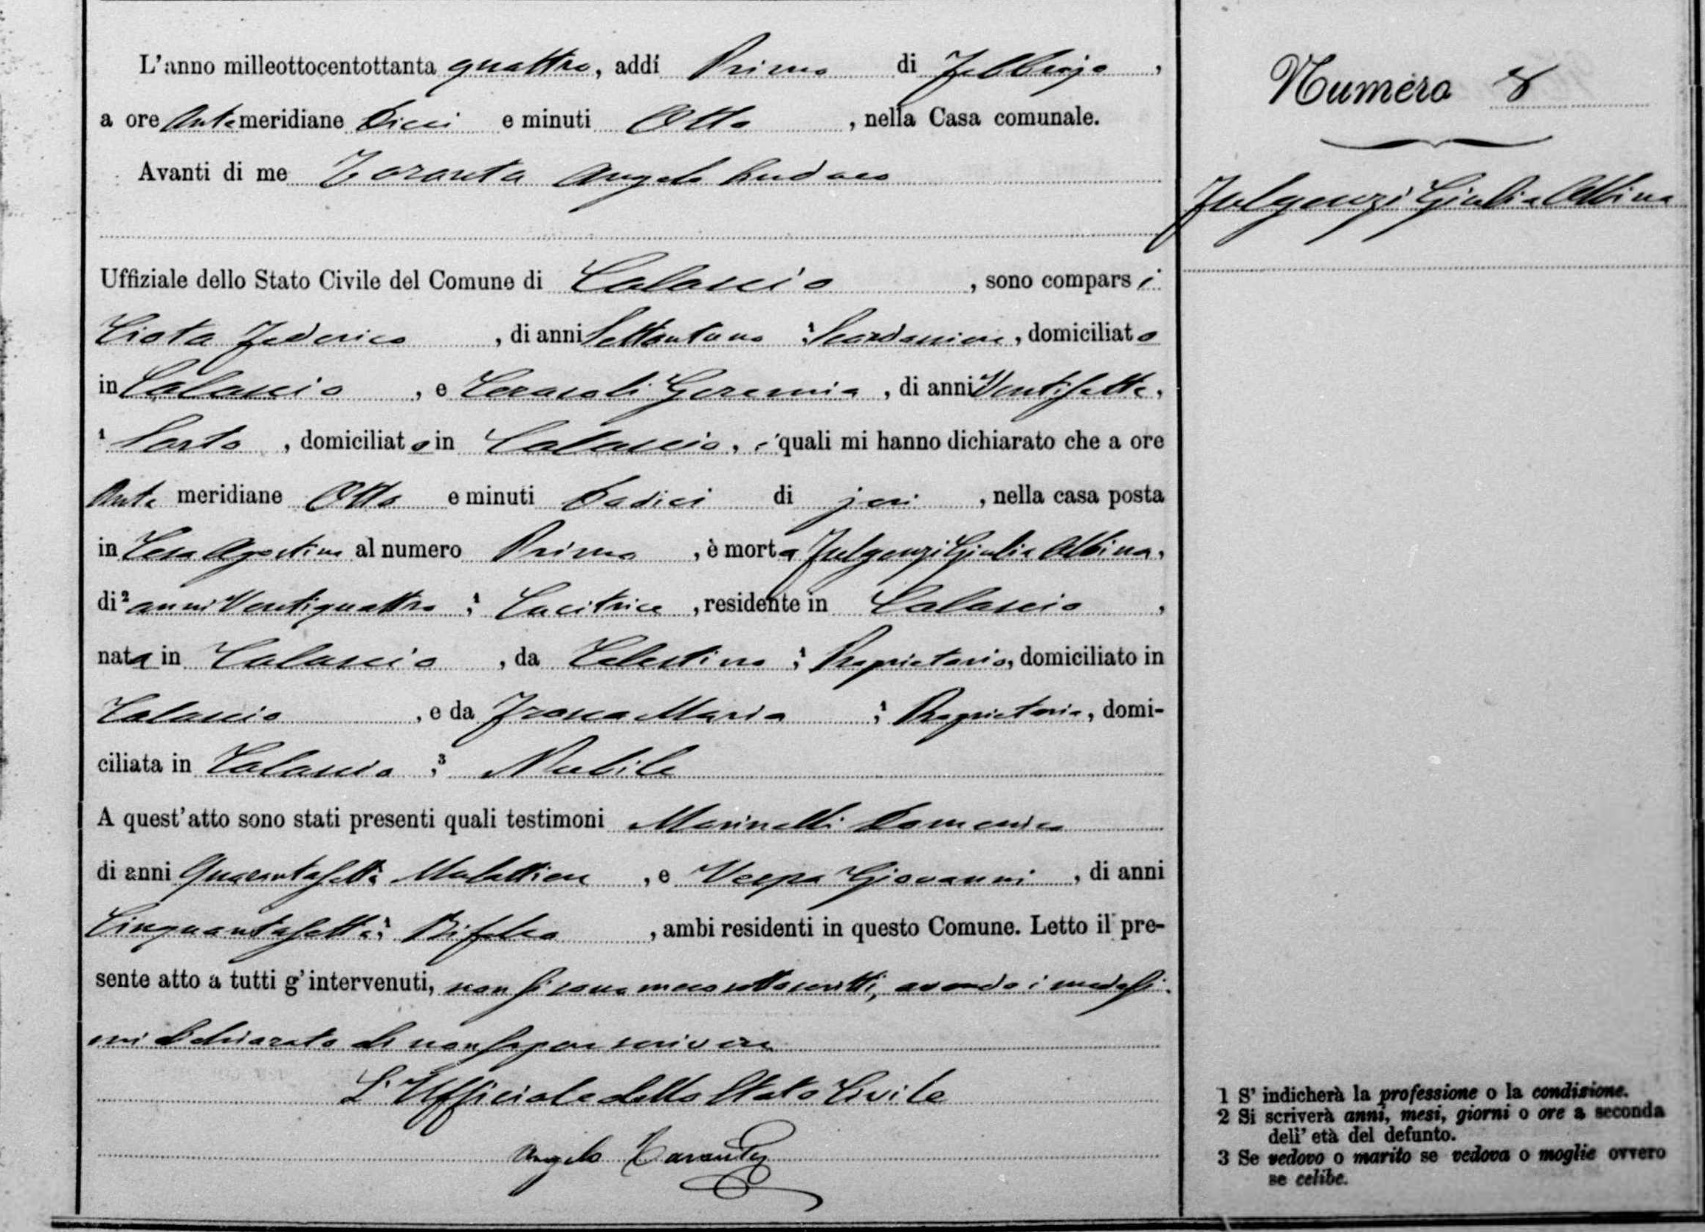 L'anno milleottocentottanta quattro, addì Primo di Febbrajo,
a ore Antemeridiane Dieci e minuti Otto, nella Casa comunale.
Avanti di me Taranta Angelo Sindaco
Uffiziale dello Stato Civile del Comune di Calascio, sono comparsi
Ciota Federico, di anni Settantuno ¹ Scardassiere, domiciliato
in Calascio, e Geremia, di anni Ventisette,
¹ Sarto, domiciliato in Calascio, i quali mi hanno dichiarato che a ore
Ante meridiane Otto e minuti Dodici di jeri, nella casa posta
in Agostino al numero Primo, è morta Fulgenzi Giulia Albina,
di ² anni Ventiquattro, ¹ Cucitrice, residente in Calascio,
nata in Calascio, da Celestino, ¹ Proprietario, domiciliato in
Calascio, e da Frasca Maria, ¹ Proprietaria, domi-
ciliata in Calascio, ³ Nubile
A quest'atto sono stati presenti quali testimoni Marinelli Domenico
di anni Quarantasette ¹ Mulattiere, e Vespa Giovanni, di anni
Cinquantasette, ¹ Bifolco, ambi residenti in questo Comune. Letto il pre-
sente atto a tutti g'intervenuti, non si sono meco sottoscritti, avendo i medesi-
mi dichiarato di non sapere scrivere
L'Ufficiale dello Stato Civile
Angelo Taranta
Numero 8
Fulgenzi Giulia Albina
1 S' indicherà la professione o la condizione.
2 Si scriverà anni, mesi, giorni o ore a seconda
dell' età del defunto.
3 Se vedovo o marito se vedova o moglie ovvero
se celibe.